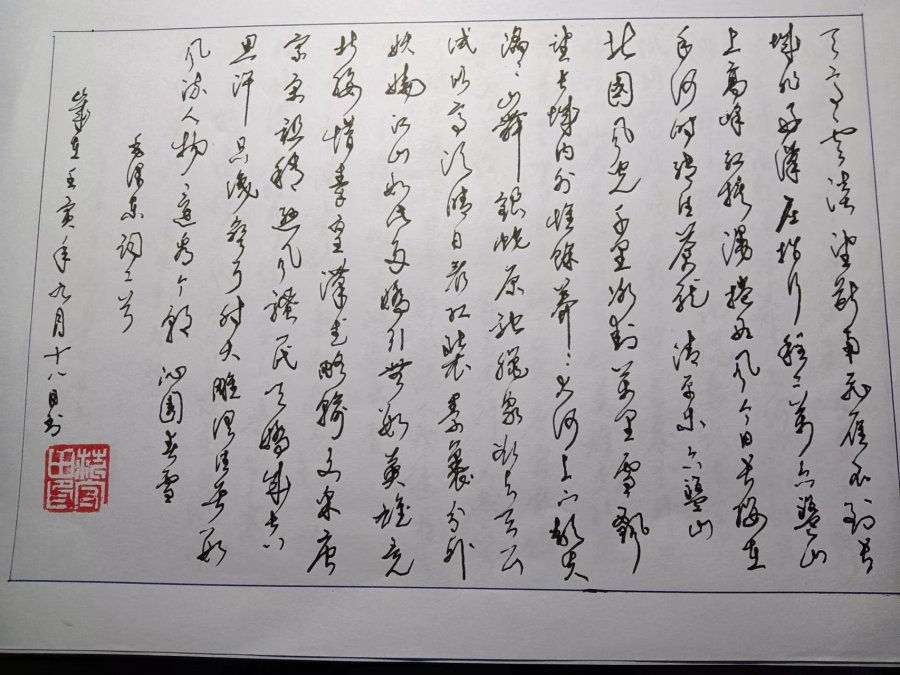 天高云淡望断南飞雁不到长
城非好漢屈指行程二萬六盘山
上高峰红旗漫捲西风今日长缨在
手何时缚住苍龙 清平乐六盘山
北国风光千里冰封萬里雪飘
望长城内外惟馀莽莽大河上下顿失
滔滔山舞银蛇原驰蜡象欲与天公
试比高须晴日看红装素裹分外
妖娆江山如此多娇引無数英雄竞
折腰惜秦皇漢武略输文采唐
宗宋祖稍逊风骚一代天骄成吉
思汗只识弯弓射大雕俱往矣数
风流人物还看今朝 沁园春雪
毛泽东词二首
岁在壬寅年九月十八日书